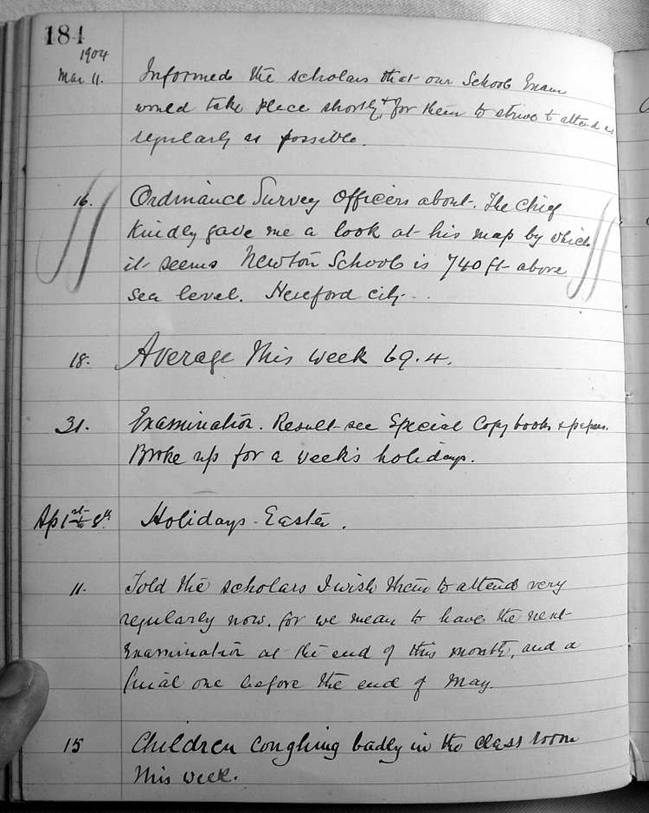 184
1904
Mar 11. Informed the scholars that our School Exam
would take place shortly & for them to strive to attend as
regularly as possible.
16. Ordinance Survey Officers about. The Chief
kindly gave me a look at his map by which
it seems Newton School is 740 ft above
sea level. Hereford city...
18. Average this week 69.4.
31. Examination. Result see Special Copy books & papers.
Broke up for a week's holidays.
Ap 1st to 8th Holidays - Easter.
11. Told the scholars I wish them to attend very
regularly now. for we mean to have the next
Examination at the end of this month, and a
final one before the end of May.
15 Children coughing badly in the class room
this week.